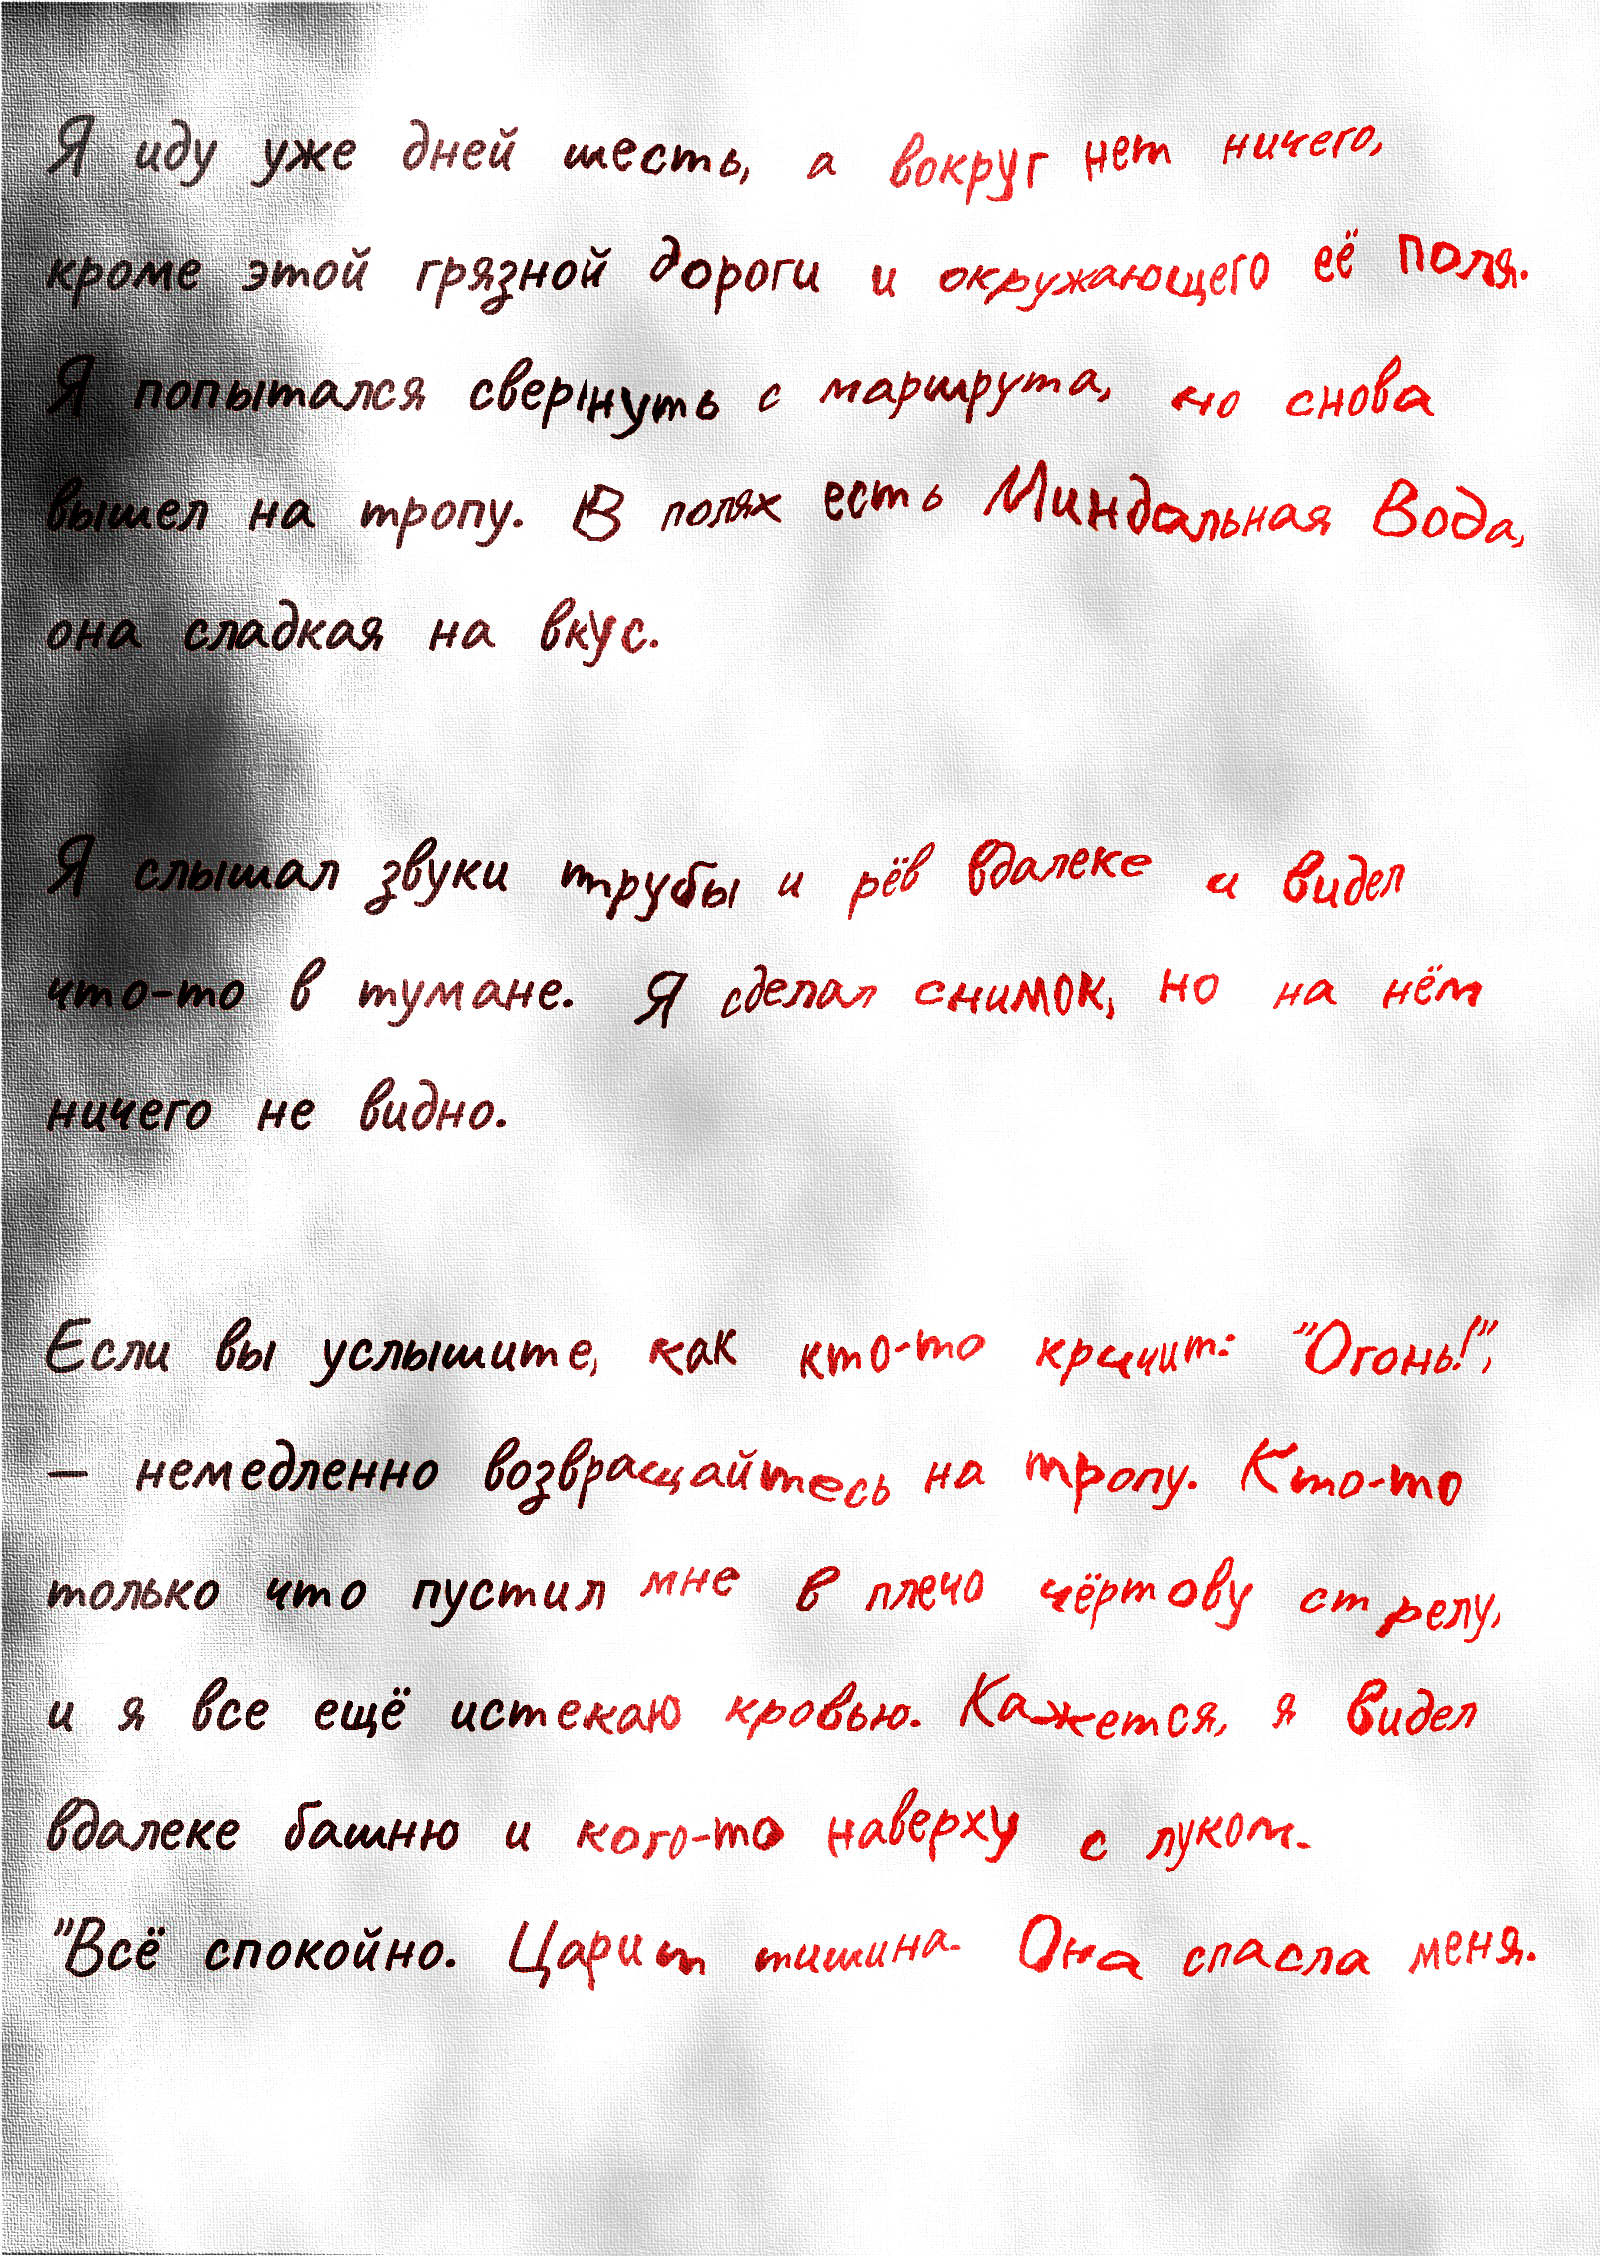 Я иду уже дней шесть, а вокруг нет ничего,
кроме этой грязной дороги и окружающего её поля.
Я попытался свернуть с маршрута, но снова
вышел на тропу. В полях есть Миндальная Вода,
она сладкая на вкус.
Я слышал звуки трубы и рёв вдалеке и видел
что-то в тумане. Я сделал снимок, но на нём
ничего не видно.
Если вы услышите, как кто-то кричит: "Огонь!",
— немедленно возвращайтесь на тропу. Кто-то
только что пустил мне в плечо чёртову стрелу,
и я все ещё истекаю кровью. Кажется, я видел
вдалеке башню и кого-то наверху с луком.
"Всё спокойно. Царит тишина. Она спасла меня.